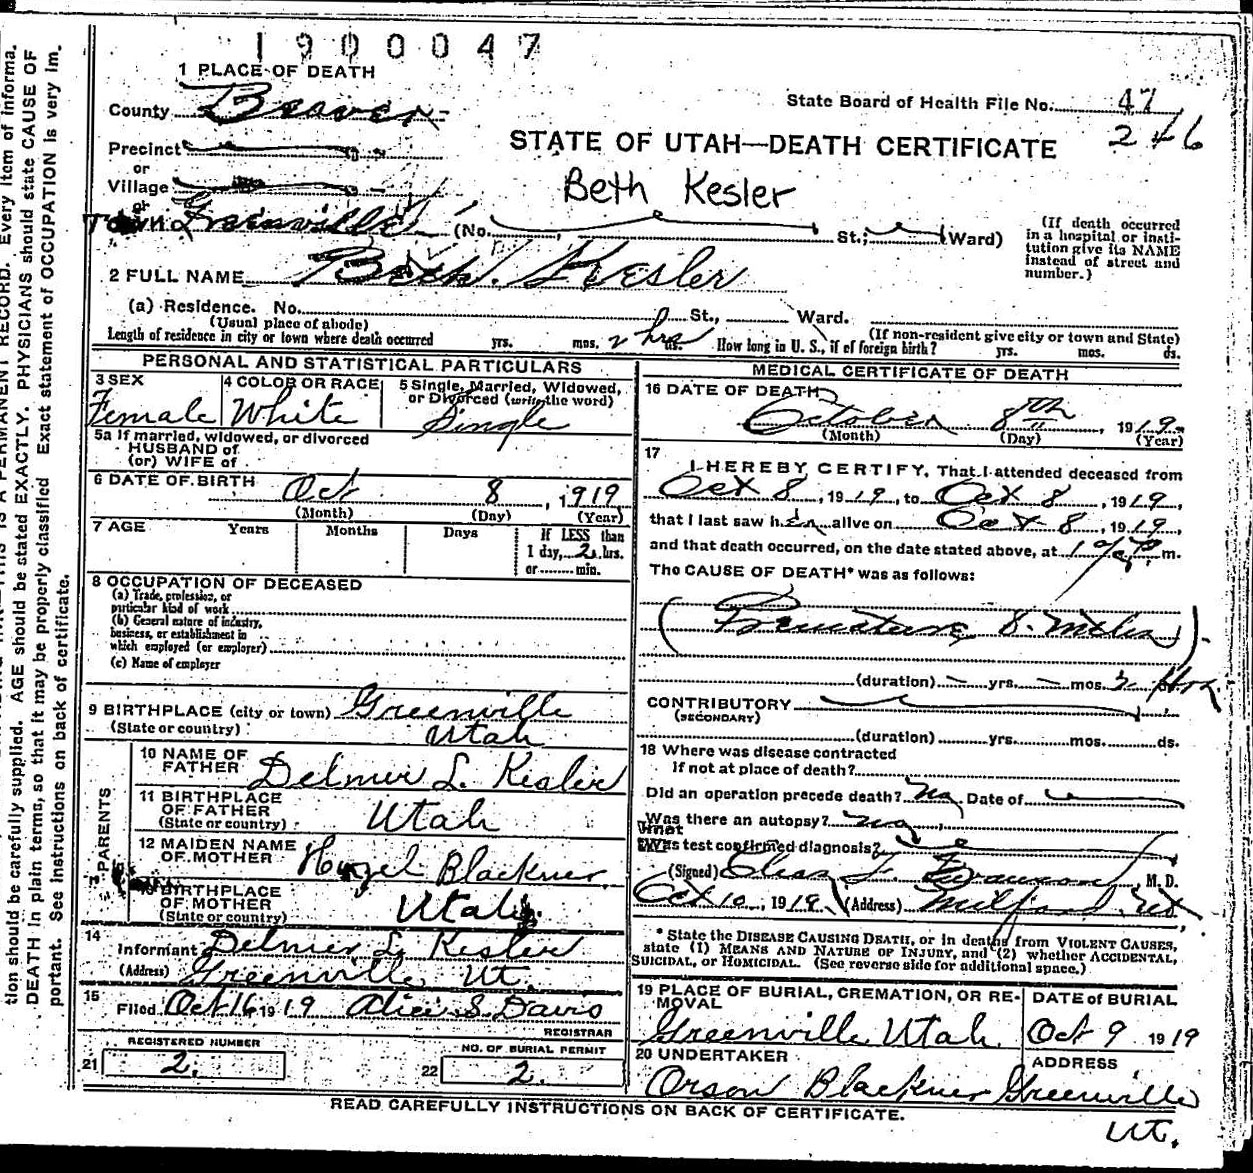 1900047
1 PLACE OF DEATH
County Beaver
State Board of Health File No. 47
246
Precinct
or
Village
or
Town Greenville (No. St.; Ward)
STATE OF UTAH—DEATH CERTIFICATE
Beth Kesler
(If death occurred
in a hospital or insti-
tution give its NAME
instead of street and
number.)
2 FULL NAME Beth Kesler
(a) Residence. No. St., Ward.
(Usual place of abode) (If non-resident give city or town and State)
Length of residence in city or town where death occurred yrs. mos. 2 hrs ds. How long in U. S., if of foreign birth? yrs. mos. ds.
PERSONAL AND STATISTICAL PARTICULARS
3 SEX 4 COLOR OR RACE 5 Single, Married, Widowed,
or Divorced (write the word)
Female White Single
5a If married, widowed, or divorced
HUSBAND of
(or) WIFE of
6 DATE OF BIRTH Oct 8, 1919
(Month) (Day) (Year)
7 AGE Years Months Days If LESS than
1 day, 2 hrs.
or min.
8 OCCUPATION OF DECEASED
(a) Trade, profession, or
particular kind of work
(b) General nature of industry,
business, or establishment in
which employed (or employer)
(c) Name of employer
9 BIRTHPLACE (city or town) Greenville
(State or country) Utah
PARENTS
10 NAME OF
FATHER Delmer L. Kesler
11 BIRTHPLACE
OF FATHER
(State or country) Utah
12 MAIDEN NAME
OF MOTHER Hazel Blackner
13 BIRTHPLACE
OF MOTHER
(State or country) Utah
14
Informant Delmer L. Kesler
(Address) Greenville Ut.
15
Filed Oct 16 1919 Alice S. Davis
REGISTRAR
REGISTERED NUMBER
21 2.
NO. OF BURIAL PERMIT
22 2.
MEDICAL CERTIFICATE OF DEATH
16 DATE OF DEATH
October 8TH, 1919
(Month) (Day) (Year)
17
I HEREBY CERTIFY, That I attended deceased from
Oct 8, 1919, to Oct 8, 1919,
that I last saw her alive on Oct 8, 1919,
and that death occurred, on the date stated above, at P. m.
The CAUSE OF DEATH* was as follows:
(Premature 8. mths).
(duration) yrs. mos. 2 Hrs.
CONTRIBUTORY
(SECONDARY)
(duration) yrs. mos. ds.
18 Where was disease contracted
If not at place of death?
Did an operation precede death? No. Date of
Was there an autopsy? no
What test confirmed diagnosis?
(Signed) M. D.
Oct 10, 1919 (Address) Milford Ut
* State the DISEASE CAUSING DEATH, or in deaths from VIOLENT CAUSES,
state (1) MEANS AND NATURE OF INJURY, and (2) whether ACCIDENTAL,
SUICIDAL, or HOMICIDAL. (See reverse side for additional space.)
19 PLACE OF BURIAL, CREMATION, OR RE-
MOVAL
Greenville Utah.
DATE of BURIAL
Oct 9 1919
20 UNDERTAKER
Orson Blackner
ADDRESS
Greenville
Ut.
READ CAREFULLY INSTRUCTIONS ON BACK OF CERTIFICATE.
PERMANENT RECORD. Every item of informa-
tion should be carefully supplied. AGE should be stated EXACTLY. PHYSICIANS should state CAUSE OF
DEATH in plain terms, so that it may be properly classified. Exact statement of OCCUPATION is very im-
portant. See instructions on back of certificate.